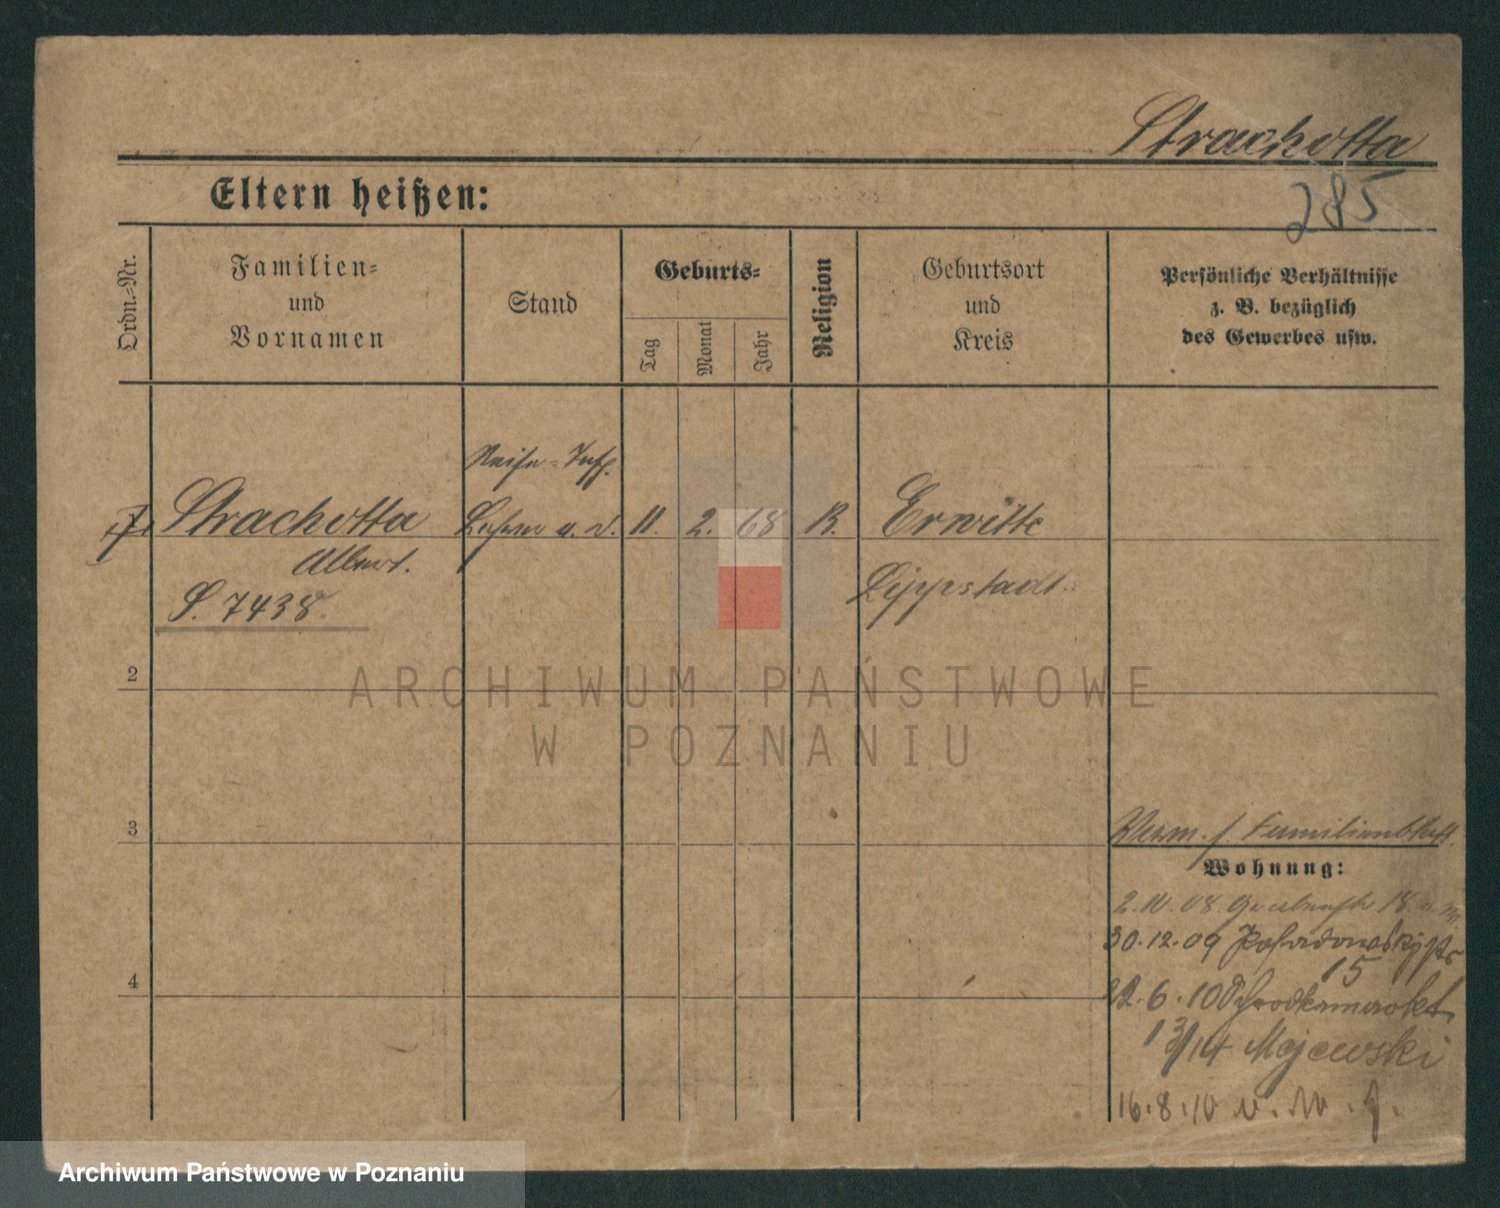 Strachotta
285
Eltern heißen:
Ordn.-Nr.
Familien-
und
Vornamen
Stand
Geburts-
Tag
Monat
Jahr
Religion
Geburtsort
und
Kreis
Persönliche Verhältnisse
z. B. bezüglich
des Gewerbes usw.
Reise-Insp.
Strachotta
Lehrer a. d.
11.
2.
68
K.
Erwitte
Albert.
Lippstadt
S. 7438.
ARCHIWUM PAŃSTWOWE
W POZNANIU
2
3
Verm. s. Familienblatt
Wohnung:
2.10.08 18
30.12.09 Posadowskystr
15
22.6.10 Schrodkamarkt
13/14 Majewski
16.8.10
4
Archiwum Państwowe w Poznaniu